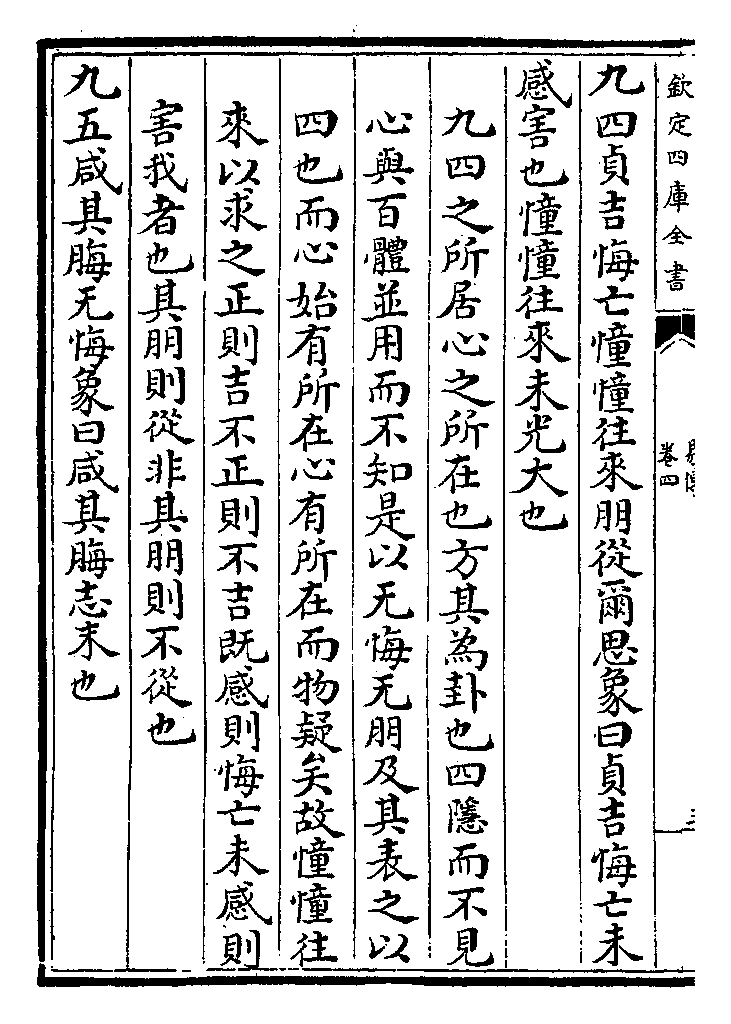 欽定四庫全書
卷四
九四貞吉悔亡憧憧往來朋從爾思象曰貞吉悔亡未
感害也憧憧往來未光大也
九四之所居心之所在也方其為卦也四隱而不見
心與百體並用而不知是以无悔无朋及其表之以
四也而心始有所在心有所在而物疑矣故憧憧往
來以求之正則吉不正則不吉既感則悔亡未感則
害我者也其朋則從非其朋則不從也
九五咸其脢无悔象曰咸其脢志末也